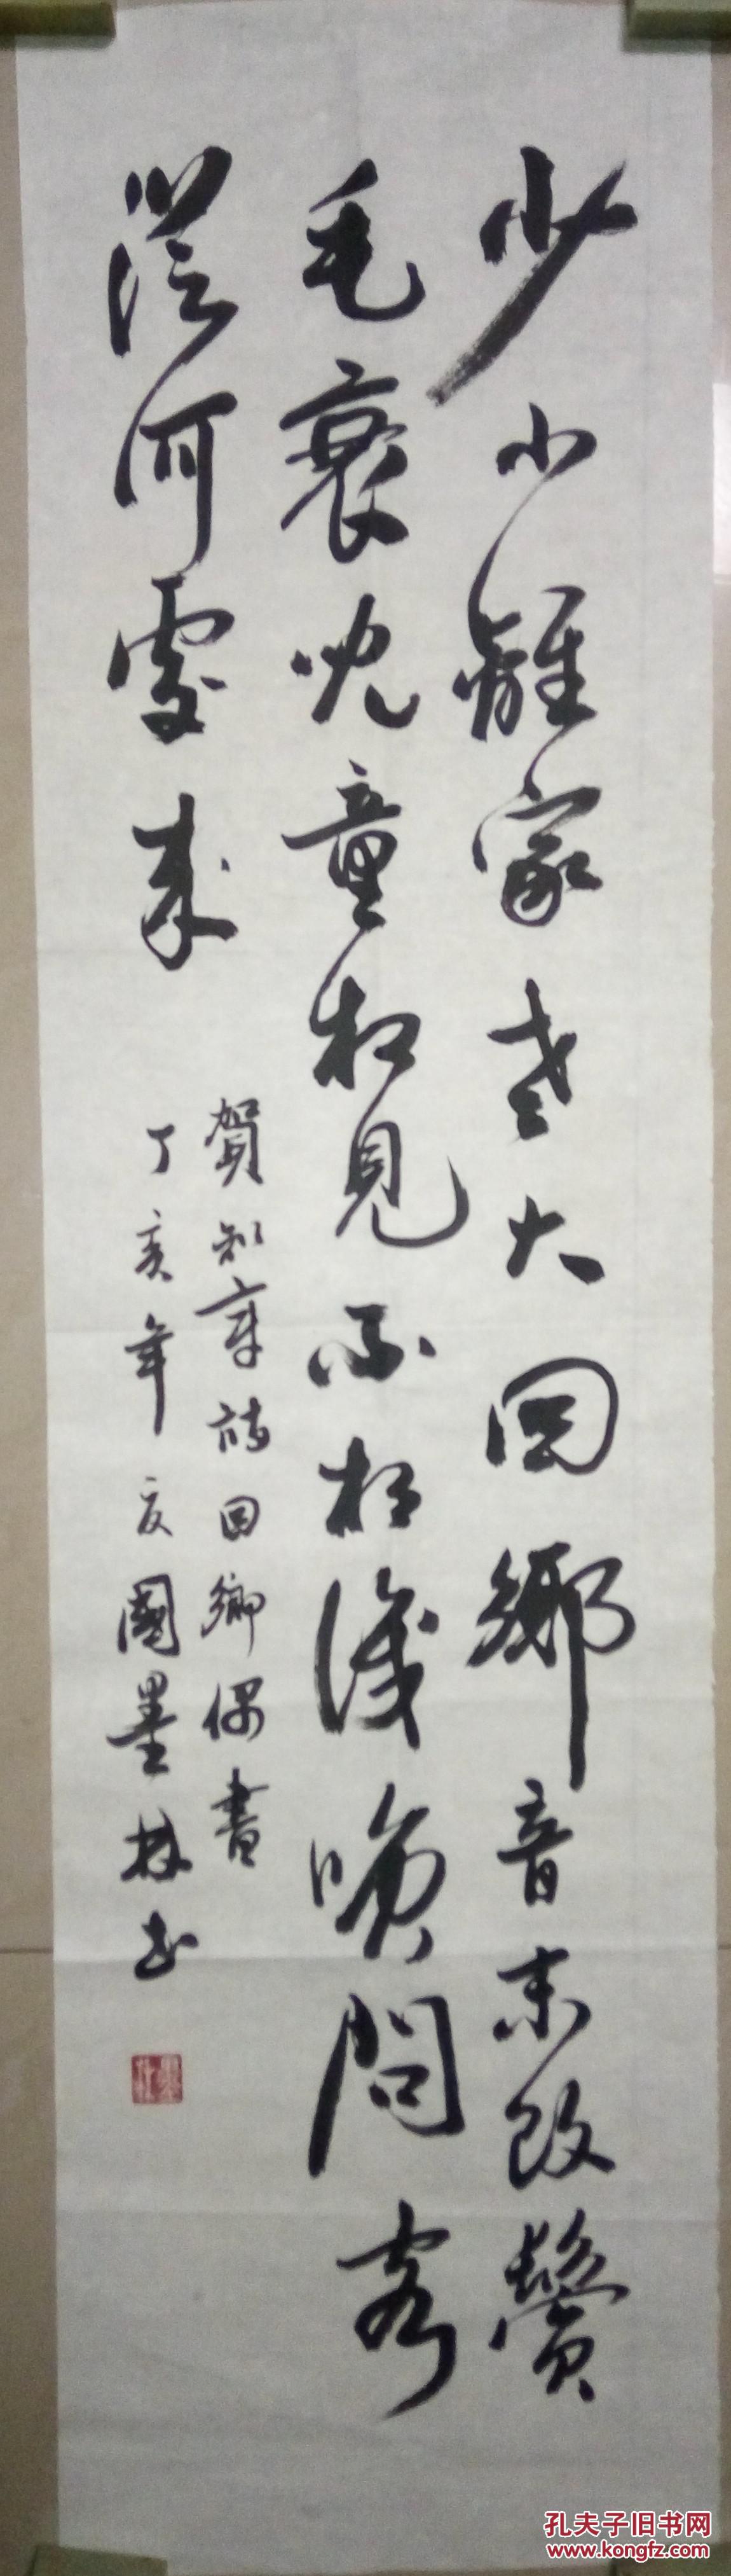 少小離家老大回鄉音未改鬢
毛衰児童相見不相識咲問客
從何處来
賀知章詩回鄉偶書
丁亥年夏國墨林书
孔夫子旧书网
www.kongfz.com